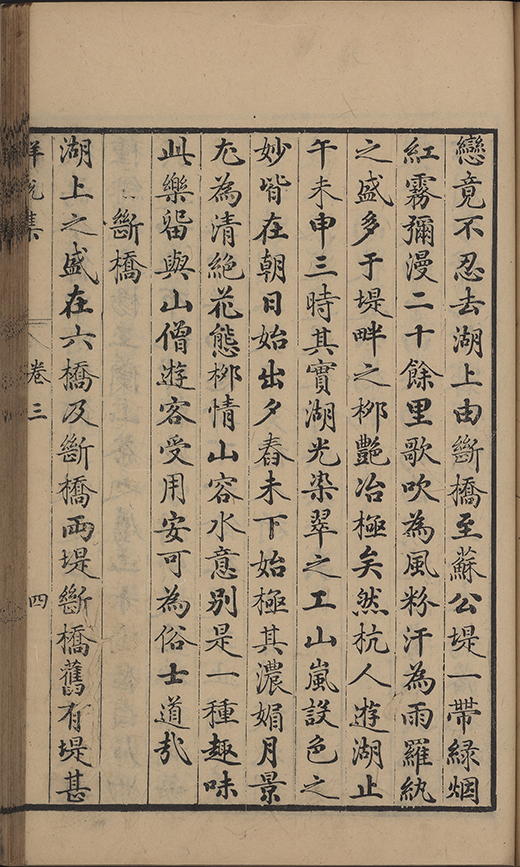 戀竟不忍去湖上由斷橋至蘇公堤一帶緑烟
紅霧彌漫二十餘里歌吹為風粉汗為雨羅紈
之盛多于堤畔之栁艷冶極矣然杭人遊湖止
午未申三時其實湖光染翠之工山嵐設色之
妙皆在朝日始出夕舂未下始極其濃媚月景
尤為清絶花態栁情山容水意别是一種趣味
此樂畱與山僧遊客受用安可為俗士道哉
斷橋
湖上之盛在六橋及斷橋兩堤斷橋舊有堤甚
卷三
四